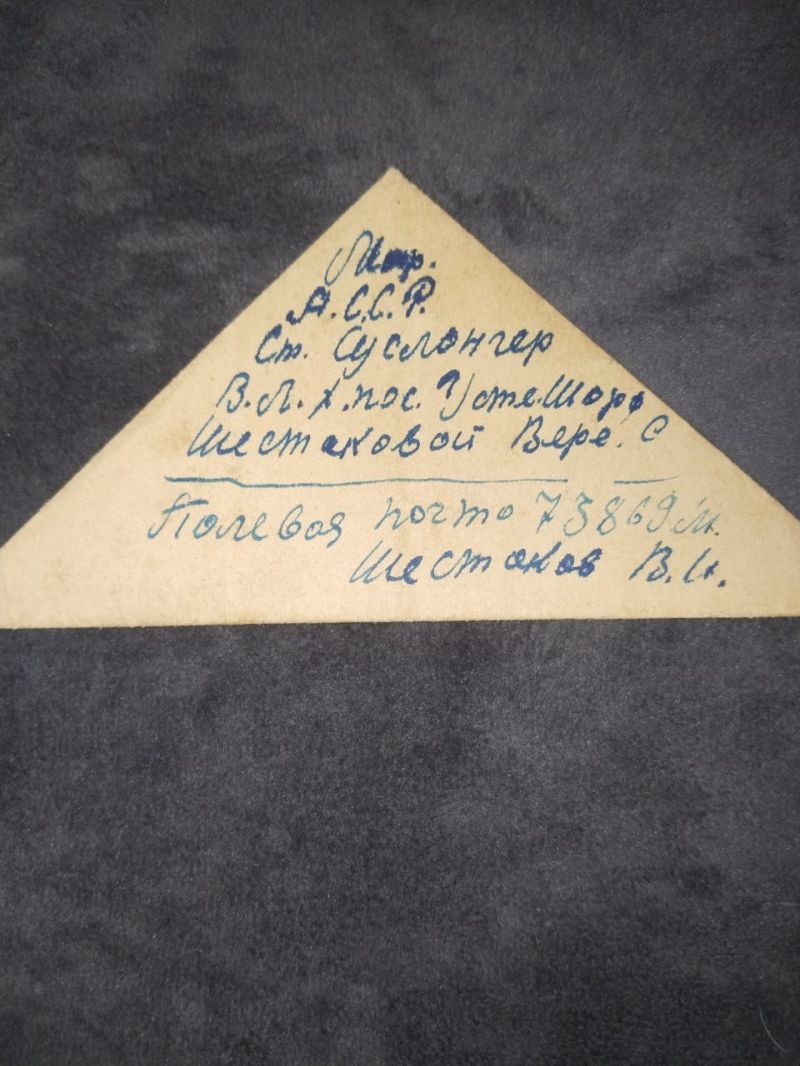 Мар.
А.С.С.Р.
Ст. Суслонгер
В.Л.Х. пос. Усте-Шора
Шестаковой Вере. С
Полевая почто 73869 м.
Шестаков В.И.